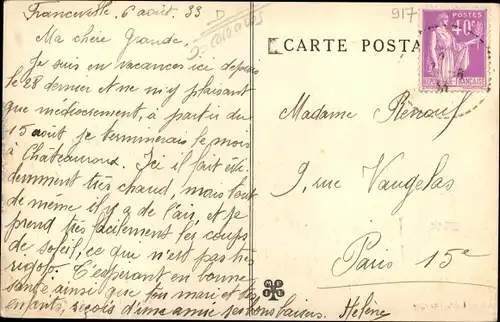 Franceville, 6 août 33
Ma chère Grande.
Je suis en vacances ici depuis
le 28 dernier et ne m'y plaisant
que médiocrement, à partir du
15 août je terminerai le mois
à Châteauroux. Ici il fait évi-
demment très chaud, mais tout
de même il y a de l'air, et je
prend très facilement les coups
de soleil, ce que n'est pas très
rigolo. T'espérant en bonne
santé ainsi que ton mari et tes
enfants, reçois d'une amie ses bons baisers. Hélène
CARTE POSTA
917
POSTES
40c
Madame Renouf
9, rue Vaugelas
Paris 15e